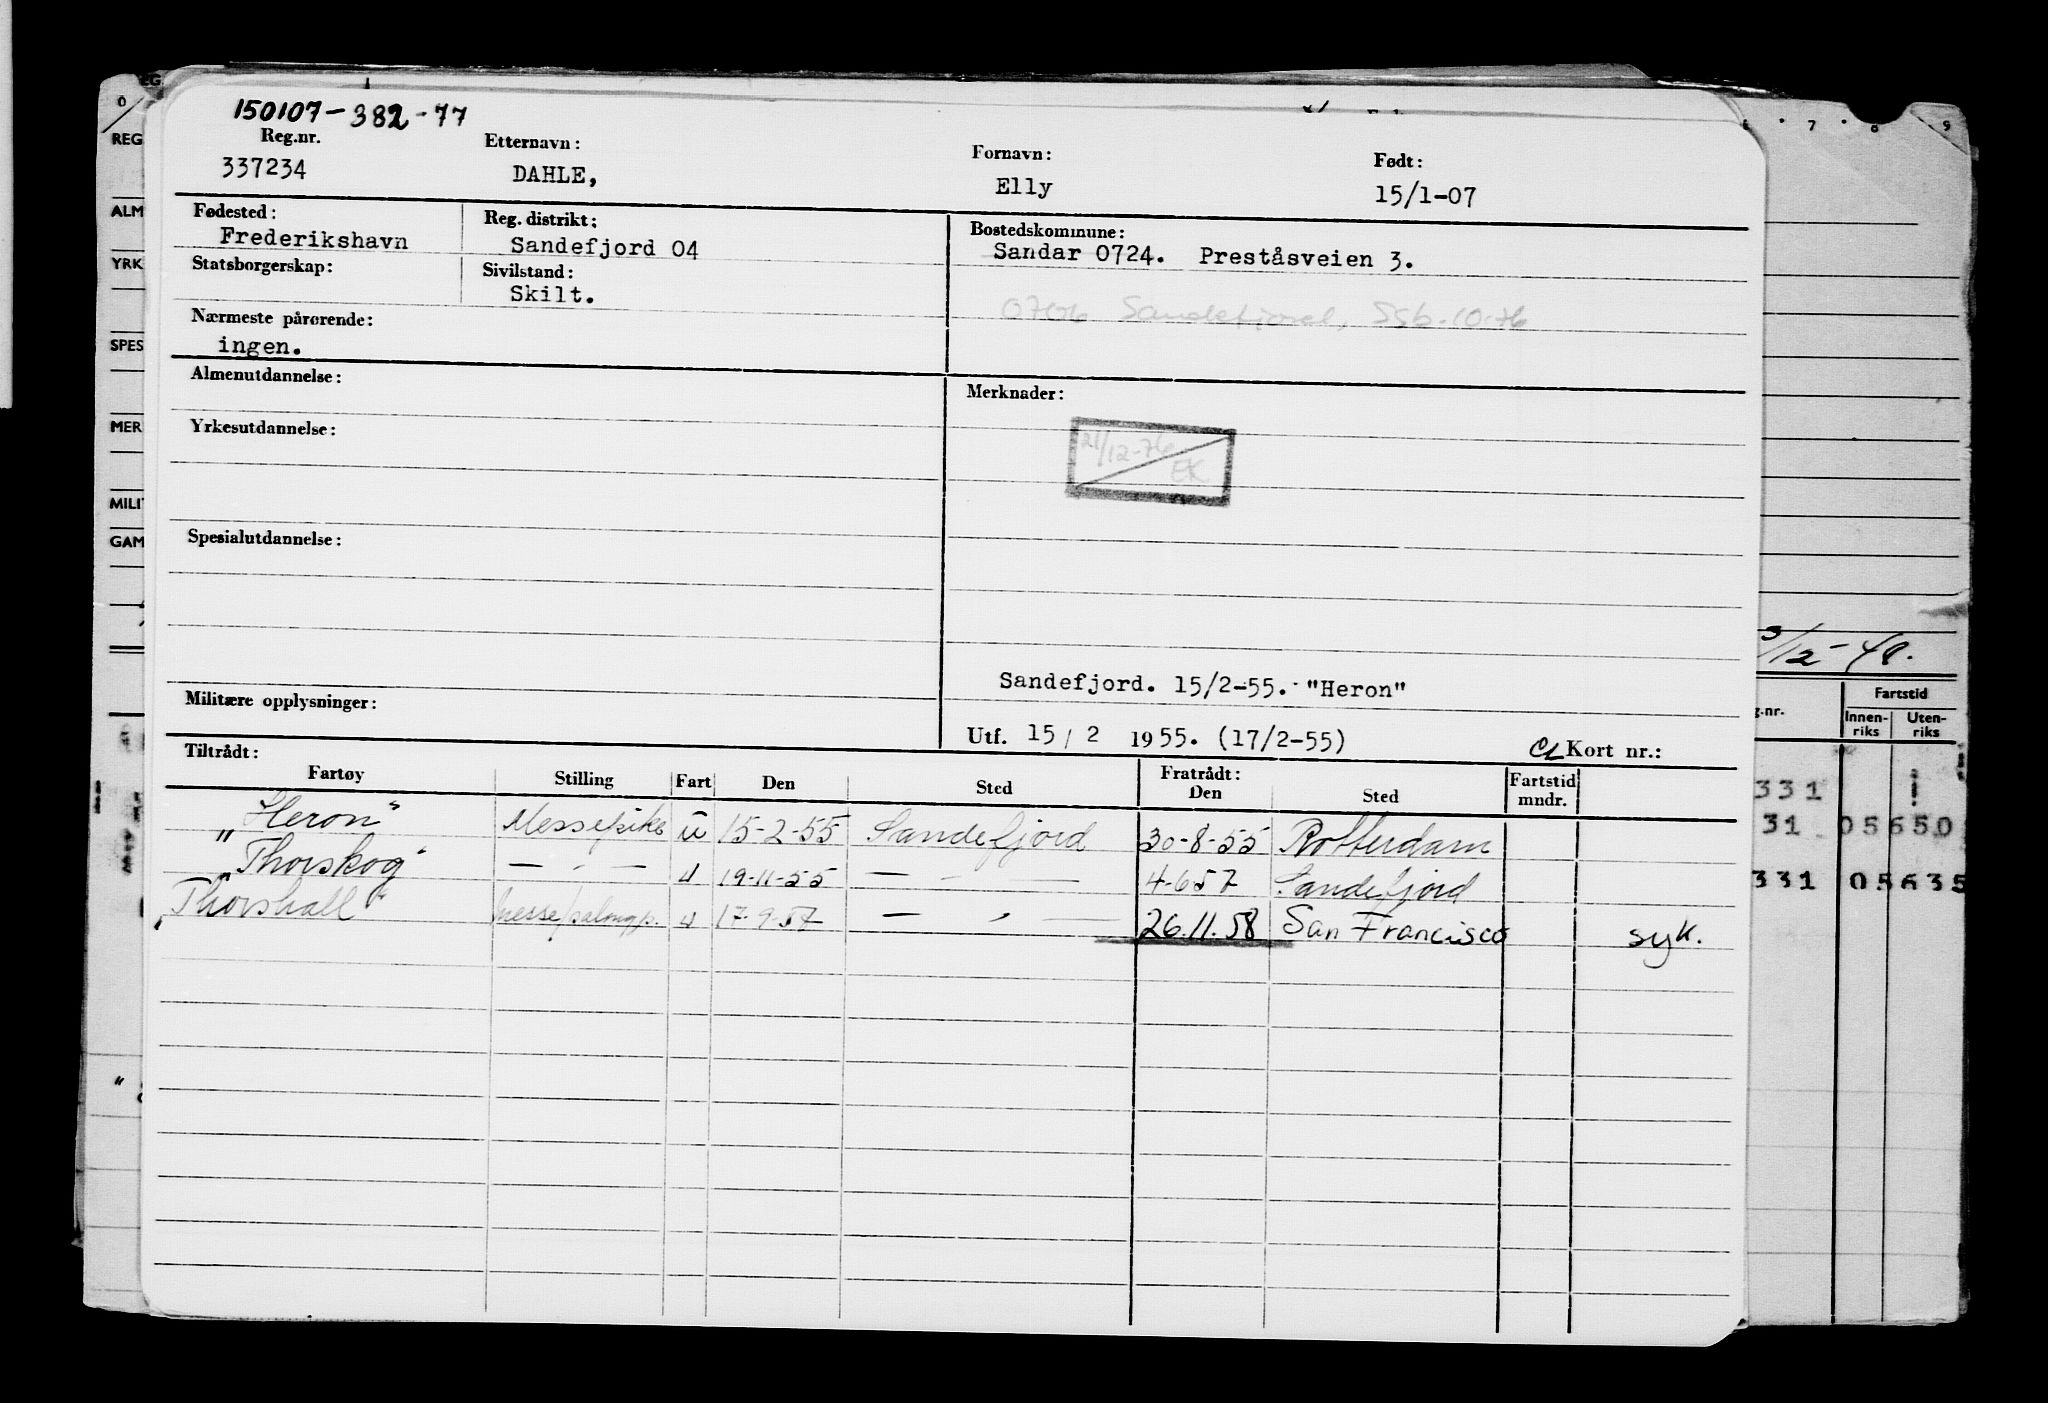 150107-382-77
Reg.nr. Etternavn: Fornavn: Født:
337234 DAHLE, Elly 15/1-07
Fødested: Reg. distrikt: Bostedskommune:
Frederikshavn Sandefjord 04 Sandar 0724. Preståsveien 3.
Statsborgerskap: Sivilstand:
Skilt.
0706 Sandefjord, Ssb. 10-76
Nærmeste pårørende:
ingen.
Almenutdannelse: Merknader:
Yrkesutdannelse:
21/12-76
EK
Spesialutdannelse:
Sandefjord. 15/2-55. "Heron"
Militære opplysninger:
Utf. 15/2 1955. (17/2-55) Kort nr.:
Tiltrådt: Fratrådt:
Fartøy Stilling Fart Den Sted Den Sted Fartstid mndr.
"Heron" Messepike u 15-2-55 Sandefjord 30-8-55 Rotterdam
"Thorskog" — - — u 19-11-55 — - — 4-6-57 Sandefjord
"Thorshall" messe/salongp. u 17-9-57 — - — 26.11.58 San Francisco syk.
REG
ALM
YRK
SPES
MER
MILI
GAM
7 8 9
3/12-48.
Fartstid
g.nr. Innen-riks Uten-riks
331
31 05650
331 05635